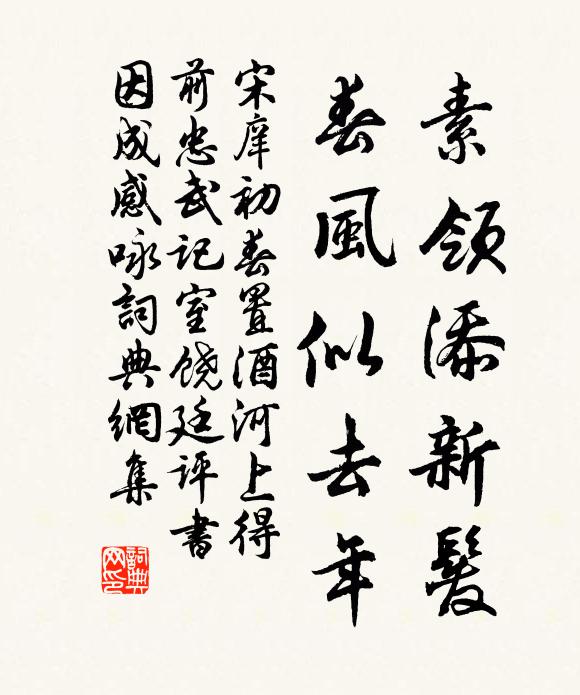 素領添新髮
春風似去年
宋庠初春置酒河上得
前忠武記室饒廷評書
因成感咏詞典網集
詞典網印